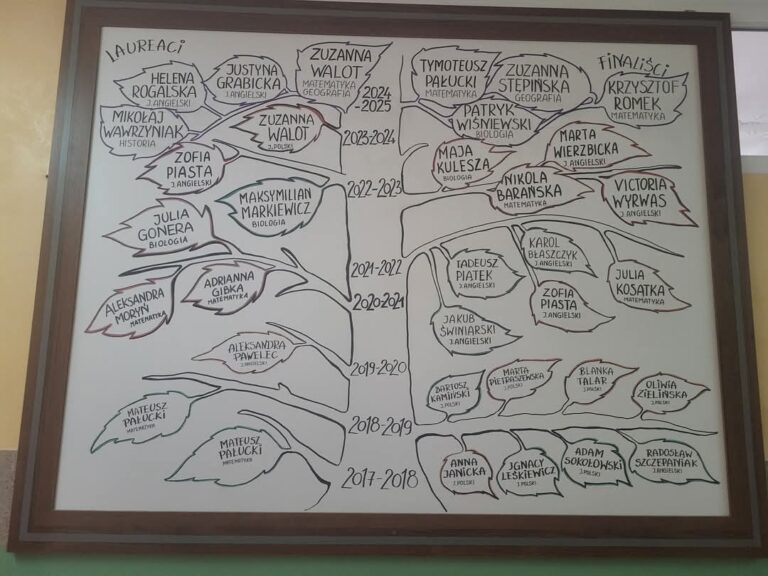 LAUREACI
HELENA
ROGALSKA
J.ANGIELSKI
JUSTYNA
GRABICKA
J.ANGIELSKI
ZUZANNA
WALOT
MATEMATYKA
GEOGRAFIA
MIKOŁAJ
WAWRZYNIAK
HISTORIA
ZUZANNA
WALOT
J.POLSKI
ZOFIA
PIASTA
J.ANGIELSKI
MAKSYMILIAN
MARKIEWICZ
BIOLOGIA
JULIA
GONERA
BIOLOGIA
ALEKSANDRA
MORYŃ
MATEMATYKA
ADRIANNA
GIBKA
MATEMATYKA
ALEKSANDRA
PAWELEC
J.ANGIELSKI
MATEUSZ
PAŁUCKI
MATEMATYKA
MATEUSZ
PAŁUCKI
MATEMATYKA
2024
-2025
2023-2024
2022-2023
2021-2022
2020-2021
2019-2020
2018-2019
2017-2018
FINALIŚCI
TYMOTEUSZ
PAŁUCKI
MATEMATYKA
ZUZANNA
STEPIŃSKA
GEOGRAFIA
KRZYSZTOF
ROMEK
MATEMATYKA
PATRYK
WIŚNIEWSKI
BIOLOGIA
MAJA
KULESZA
BIOLOGIA
MARTA
WIERZBICKA
J.ANGIELSKI
NIKOLA
BARAŃSKA
MATEMATYKA
VICTORIA
WYRWAS
J.ANGIELSKI
TADEUSZ
PIATEK
J.ANGIELSKI
KAROL
BŁASZCZYK
J.ANGIELSKI
JULIA
KOSĄTKA
MATEMATYKA
ZOFIA
PIASTA
J.ANGIELSKI
JAKUB
ŚWINIARSKI
J.ANGIELSKI
BARTOSZ
KAMIŃSKI
J.POLSKI
MARTA
PIETRASZEWSKA
J.POLSKI
BLANKA
TALAR
J.POLSKI
OLIWIA
ZIELIŃSKA
J.POLSKI
ANNA
JANICKA
J.POLSKI
IGNACY
LEŚKIEWICZ
J.POLSKI
ADAM
SOKOŁOWSKI
J.POLSKI
RADOSŁAW
SZCZEPANIAK
J.ANGIELSKI